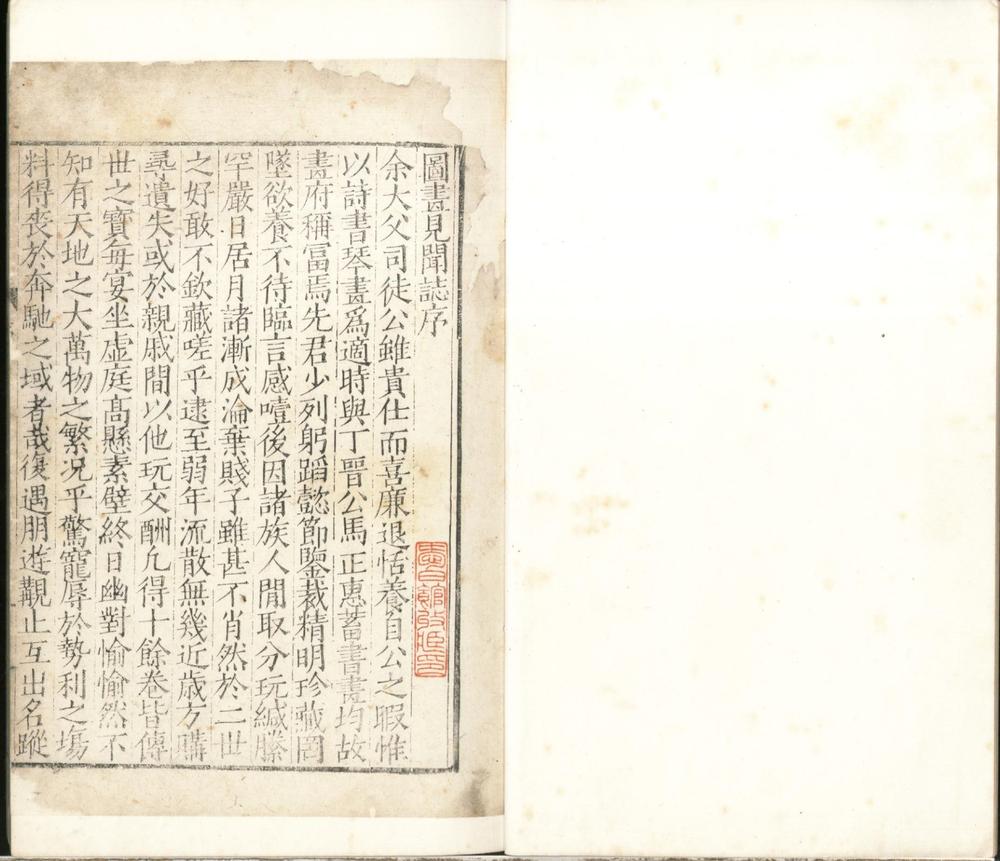 圖畫見聞誌序
余大父司徒公雖貴仕而喜廉退恬養自公之暇惟
以詩書琴畫爲適時與丁晉公馬正惠蓄書畫均故
畫府稱富焉先君少列躬蹈懿節鑒裁精明珍藏罔
墜欲養不待臨言感噎後因諸族人間取分玩緘縢
罕嚴日居月諸漸成淪棄賤子雖甚不肖然於二世
之好敢不欽藏嗟乎逮至弱年流散無幾近歲方購
尋遺失或於親戚間以他玩交酬凡得十餘卷皆傳
世之寶每宴坐虛庭高懸素壁終日幽對愉愉然不
知有天地之大萬物之繁况乎驚寵辱於勢利之塲
料得喪於奔馳之域者哉復遇朋遊觀止互出名蹤